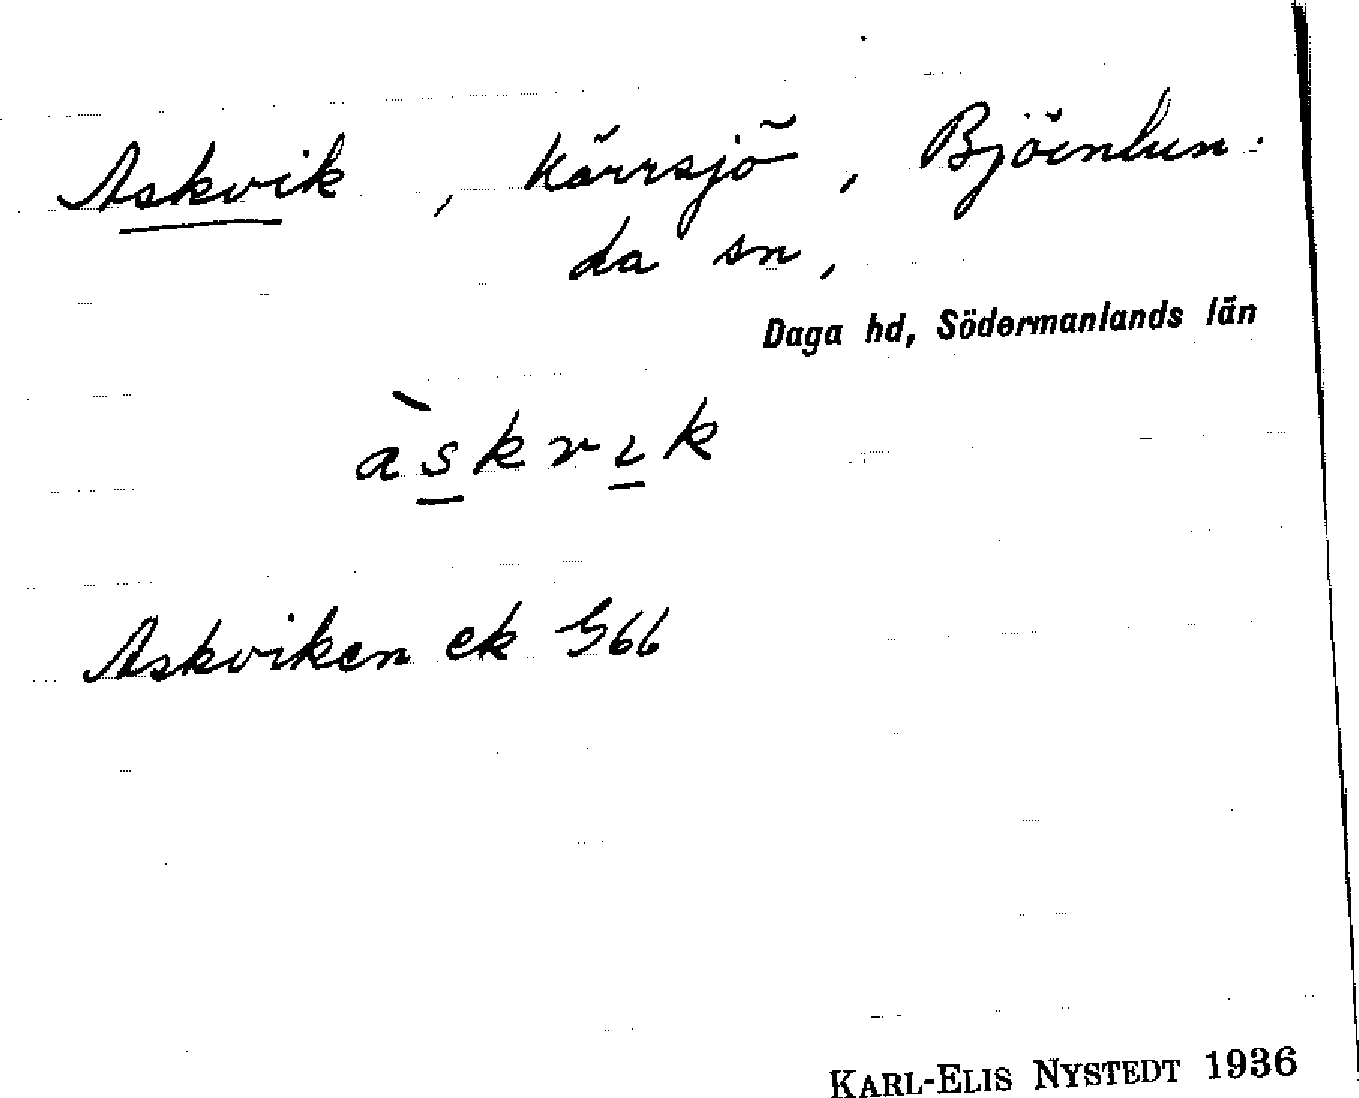 Askvik, Kärrsjö, Björnlun-
da sn,
Daga hd, Södermanlands län
àskvɩk
Askviken ek G66
KARL-ELIS NYSTEDT 1936